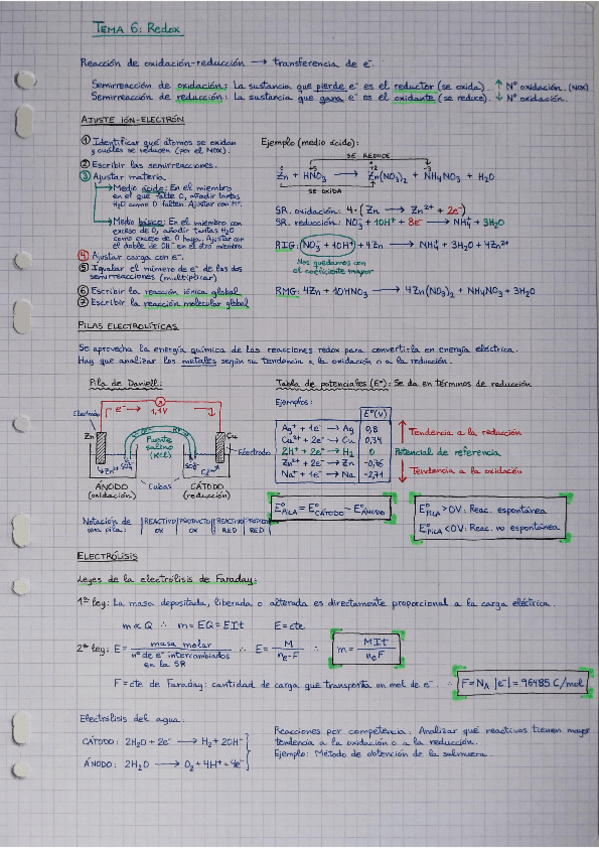 TEMA 6: Redox
Reacción de oxidación-reducción → transferencia de e⁻.
Semirreacción de oxidación: La sustancia que pierde e⁻ es el reductor (se oxida). ↑ Nº oxidación. (NOX)
Semirreacción de reducción: La sustancia que gana e⁻ es el oxidante (se reduce). ↓ Nº oxidación.
AJUSTE IÓN-ELECTRÓN
① Identificar qué átomos se oxidan
y cuáles se reducen (por el NOX).
② Escribir las semirreacciones.
③ Ajustar materia.
Medio ácido: En el miembro
en el que falte O, añadir tantas
H₂O como O falten. Ajustar con H⁺.
Medio básico: En el miembro con
exceso de O, añadir tantas H₂O
como exceso de O haya. Ajustar con
el doble de OH⁻ en el otro miembro
④ Ajustar carga con e⁻.
⑤ Igualar el número de e⁻ de las dos
semirreacciones (multiplicar)
⑥ Escribir la reacción iónica global
⑦ Escribir la reacción molecular global
Ejemplo (medio ácido):
SE REDUCE
Zn + HNO₃ → Zn(NO₃)₂ + NH₄NO₃ + H₂O
SE OXIDA
SR. oxidación: 4·(Zn → Zn²⁺ + 2e⁻)
SR. reducción: NO₃⁻ + 10H⁺ + 8e⁻ → NH₄⁺ + 3H₂O
RIG: NO₃⁻ + 10H⁺ + 4Zn → NH₄⁺ + 3H₂O + 4Zn²⁺
Nos quedamos con
el coeficiente mayor
RMG: 4Zn + 10HNO₃ → 4Zn(NO₃)₂ + NH₄NO₃ + 3H₂O
PILAS ELECTROLÍTICAS
Se aprovecha la energía química de las reacciones redox para convertirla en energía eléctrica.
Hay que analizar los metales según su tendencia a la oxidación o a la reducción.
Pila de Daniell:
e⁻ → 1,1 V
Electrodo
Zn
Puente
salino
(KCl)
Cu
Electrodo
Zn²⁺ SO₄²⁻ SO₄²⁻ Cu²⁺
ÁNODO
(oxidación)
Cubas
CÁTODO
(reducción)
Notación de
una pila:
REACTIVO
OX
PRODUCTO
OX
REACTIVO
RED
RED
Tabla de potenciales (E°): Se da en términos de reducción
Ejemplos:
E°(V)
Ag⁺ + 1e⁻ → Ag 0,8
Cu²⁺ + 2e⁻ → Cu 0,34
2H⁺ + 2e⁻ → H₂ 0
Zn²⁺ + 2e⁻ → Zn -0,76
Na⁺ + 1e⁻ → Na -2,71
↑ Tendencia a la reducción
Potencial de referencia
↓ Tendencia a la oxidación
E°PILA = E°CÁTODO − E°ÁNODO
E°PILA > 0V: Reac. espontánea
E°PILA < 0V: Reac. no espontánea
ELECTRÓLISIS
Leyes de la electrólisis de Faraday:
1ª ley: La masa depositada, liberada o alterada es directamente proporcional a la carga eléctrica.
m ∝ Q ∴ m = EQ = EIt E = cte
2ª ley: E = masa molar / nº de e⁻ intercambiados en la SR ∴ E = M / nₑ·F ∴ m = MIt / nₑF
F = cte. de Faraday: cantidad de carga que transporta un mol de e⁻ ∴ F = N_A |e⁻| = 96485 C/mol
Electrólisis del agua:
CÁTODO: 2H₂O + 2e⁻ → H₂ + 2OH⁻
ÁNODO: 2H₂O → O₂ + 4H⁺ + 4e⁻
Reacciones por competencia: Analizar qué reactivos tienen mayor
tendencia a la oxidación o a la reducción.
Ejemplo: Método de obtención de la salmuera.